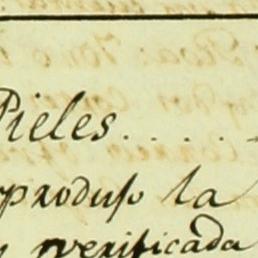 Pieles....
produjo la
verificada